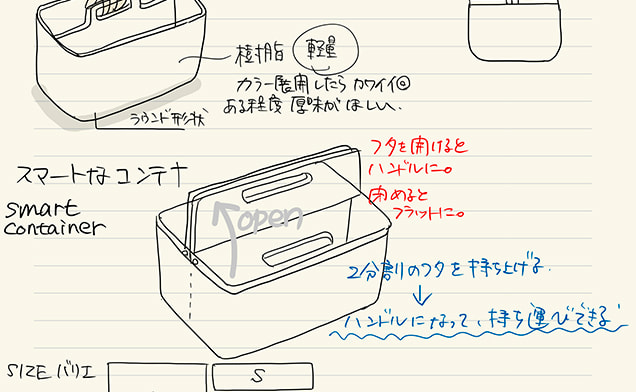 樹脂 軽量
カラー展開したらカワイイ
ある程度厚味がほしい、
ラウンド形状
フタを開けると
ハンドルに。
閉めると
フラットに。
スマートなコンテナ
smart
container
open
2分割のフタを持ち上げる.
ハンドルになって、持ち運びできる
SIZEバリエ
S